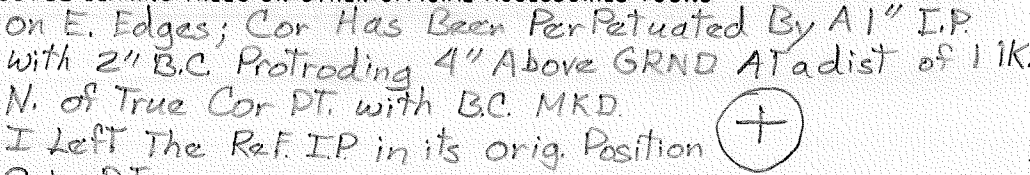 on E. Edges; Cor Has Been PerPetuated By A 1" I.P.
with 2" B.C. Protroding 4" Above GRND AT a dist of 1 lK.
N. of True Cor PT. with B.C. MKD.
I Left The Ref. I.P. in its orig. Position